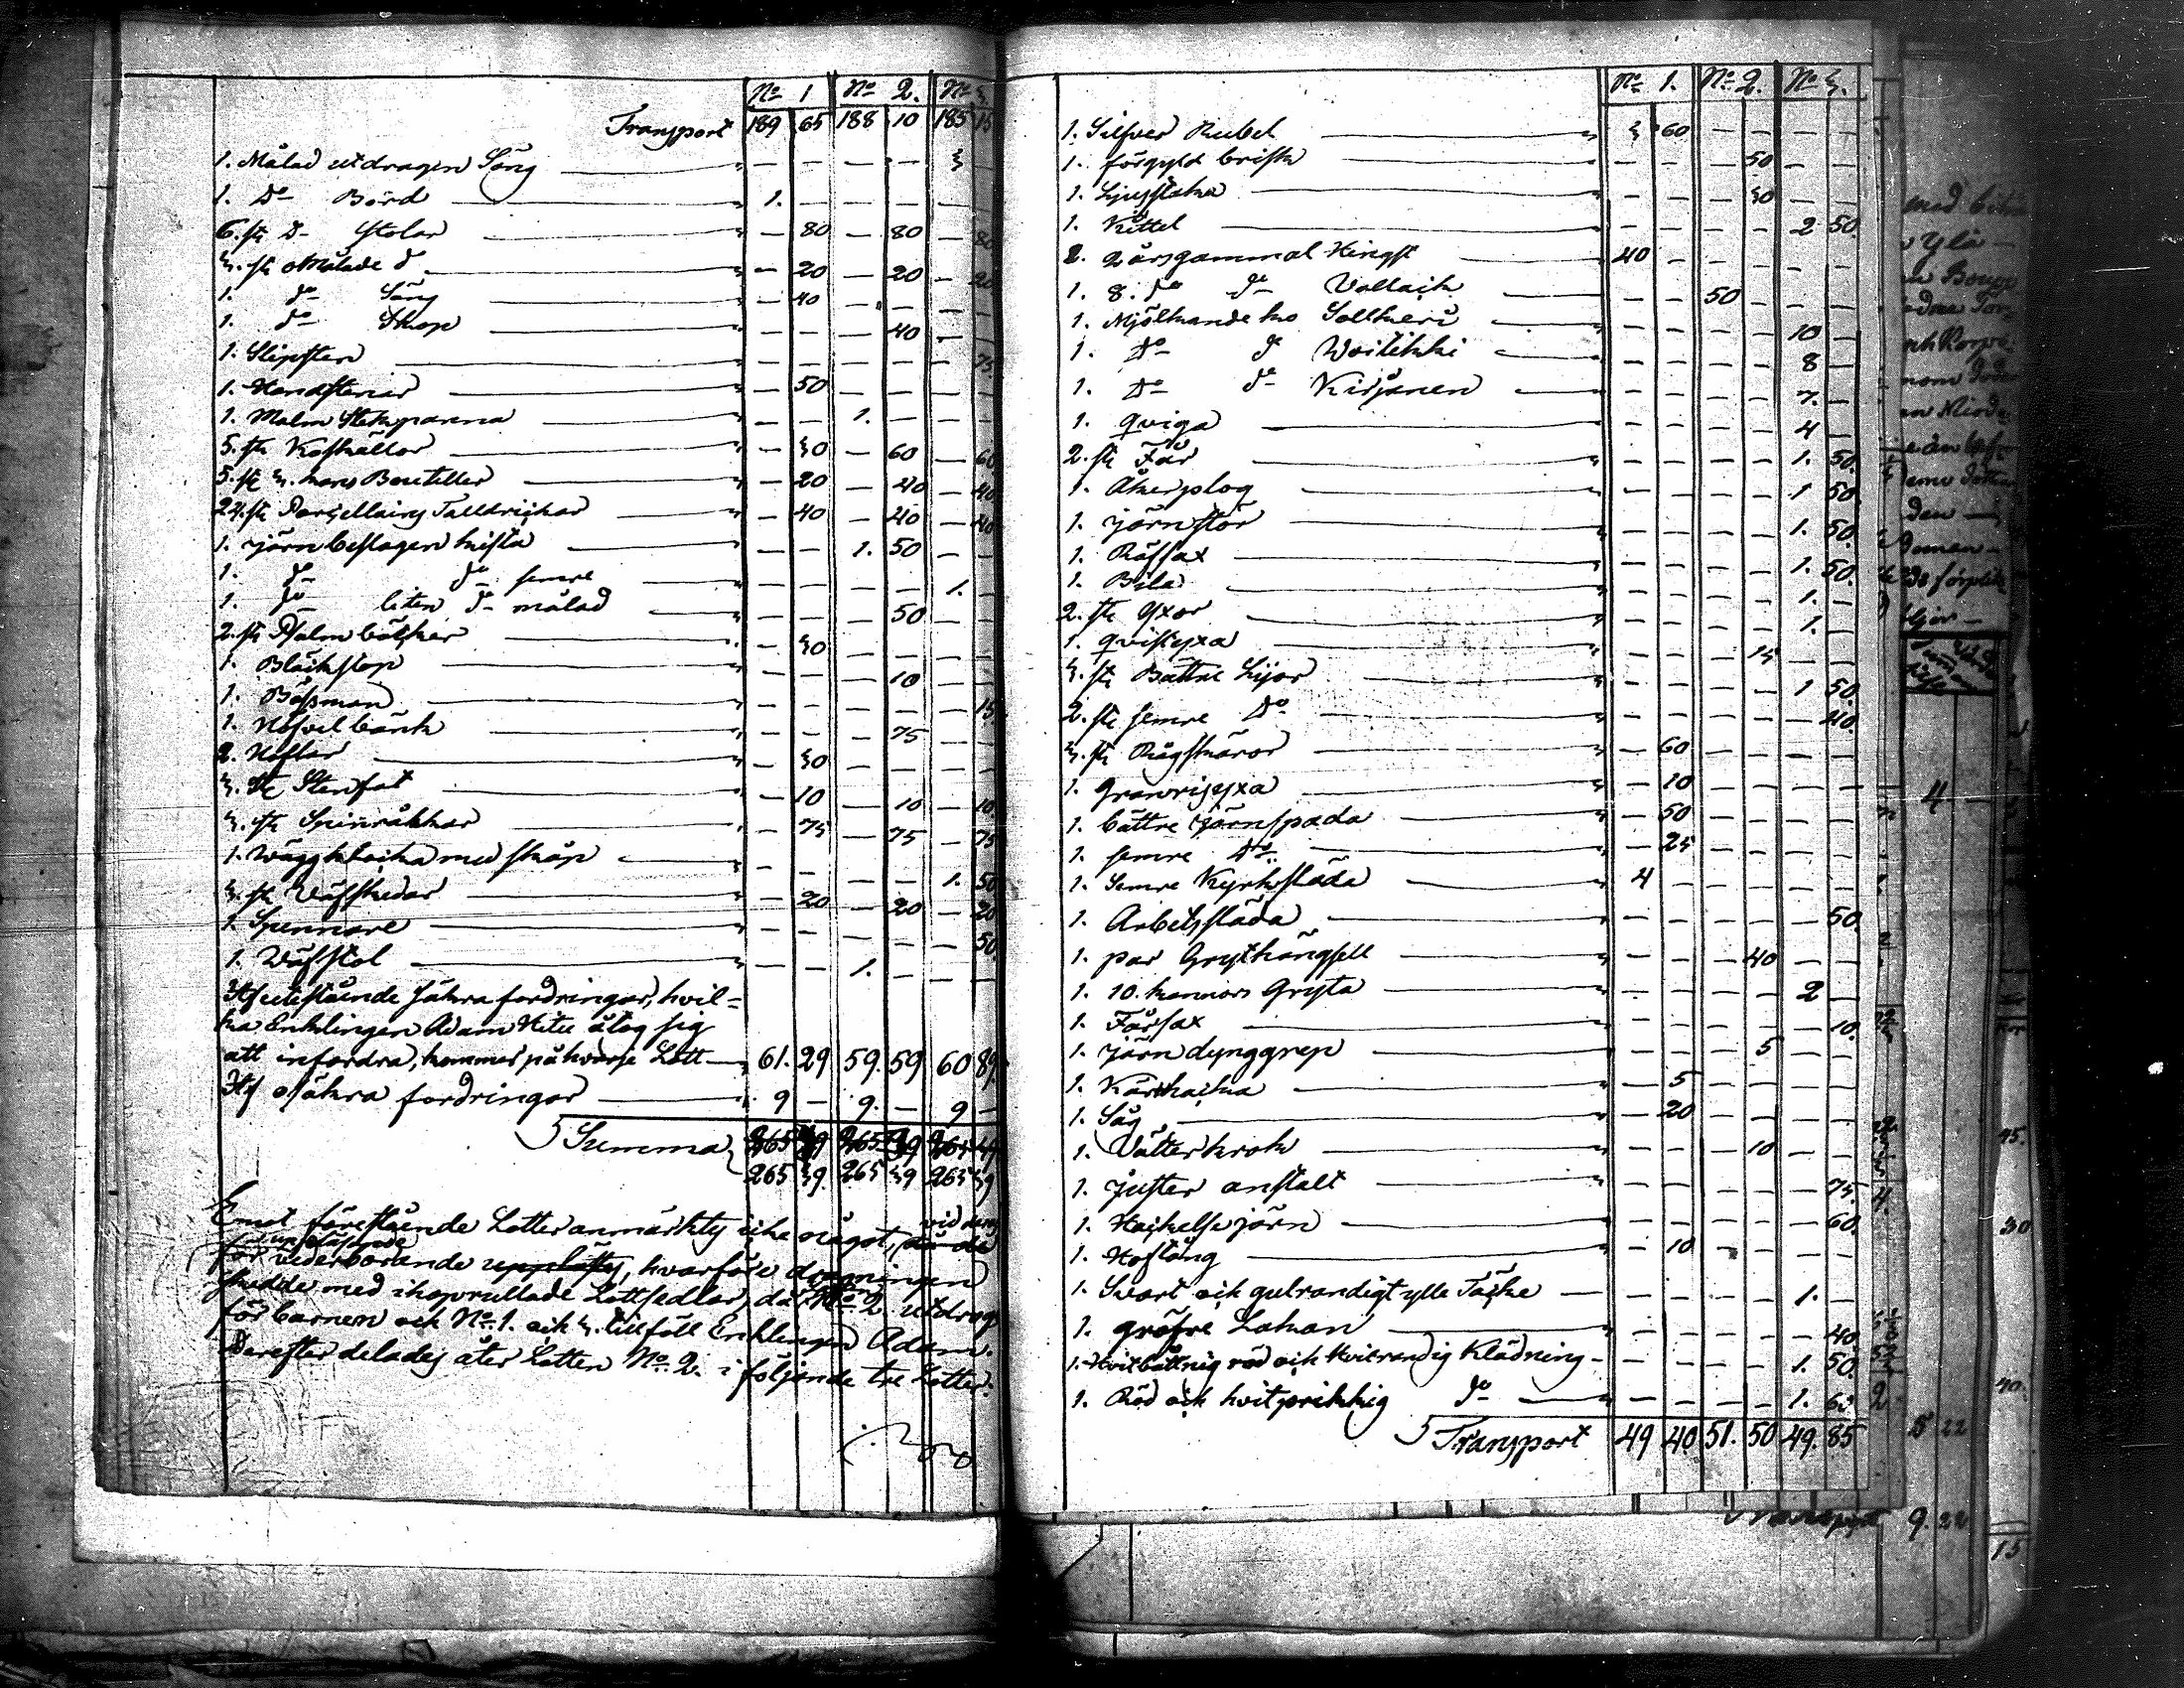 No 1 No 2. No 3.
Transport 189 65 188 10 185 15
1. Målad utdragen Säng — — — — 3 —
1. Do Bord 1. — — — — —
6. st. Do Stolar — 80 — 80 — 80
3. st. oMålade do — 20 — 20 — 20
1. do Säng — 40 — — — —
1. do Skap — — — 40 — —
1. Slipsten — — — — — 75
1. Handstenar — 50 — — — —
1. Malm Stekpanna — — 1. — — —
5. st. Koskällor — 30 — 60 — 60
5. st. Bouteiller — 20 — 40 — 40
24. st. Porcellains Talldrickar — 40 — 40 — 40
1. järnbeslagen kista — — 1. 50 — —
1. do do semre — — — — 1. —
1. do liten do målad — — — 50 — —
2. st. Psalmböcker — 30 — — — —
1. Bläckstop — — — 10 — —
1. Bössman — — — — — 15
1. Höfvelbänk — — — 75 — —
2. Höflar — 30 — — — —
3. st. Stenfat — 10 — 10 — 10
3. st. Spinråckar — 75 — 75 — 75
1. Wäggklocka med skåp — — — — 1. 50
3. st. Väfskedar — 20 — 20 — 20
1. Spennare — — — — — 50
1. Wäfstol — — 1. — — —
Af utestående säkra fordringar, hvil-
ka Enklingen Adam åtog sig
att infordra, kommer på hvarje Lott 61. 29 59. 59 60 89
Af osäkra fordringar 9 — 9. — 9 —
Summa
265 39 265 39 265 39
Emot förestående Lotter anmärktes icke något,
vederbörande, hvarföre dragningen
skedde med ihoprullade Lottsedlar, då No 2. utdrogs
för barnen och No 1. och 3. tillföll Enklingen Adam.
Derefter delades åter Lotten No 2. i följande tre Lotter.
No 1. No 2. No 3.
1. Silfver Rubel 3 60 — — — —
1. förgyld brisk — — — 50 — —
1. Ljusstaka — — — 30 — —
1. Kittel — — — — 2 50.
2. 2 årsgammal Hingst 40 — — — — —
1. 8. do do Vallack — — 50 — — —
1. Mjölkande ko — — — — 10 —
1. Do do — — — — 8 —
1. Do do Kirjonen — — — — 7. —
1. Qviga — — — — 4 —
2. st. Får — — — — 1. 50.
1. Åkerplog — — — — 1 50
1. Järnstör — — — — 1. 50.
1. Räfsax — — — — 1. 50.
1. Bila — — — — 1. —
2. st. Yxor — — — — 1. —
1. Qvistyxa — — — 15 — —
3. st. Bättre Lijor — — — — 1 50.
2. st. semre Do — — — — — 40.
3. st. Rågskäror — 60 — — — —
1. — 10 — — — —
1. bättre järnspada — 50 — — — —
1. semre Do — 25 — — — —
1. Semre Kyrksläda 4 — — — — —
1. Arbetssläda — — — — — 50
1. par Grythängsell — — — 40 — —
1. 10. kannors Gryta — — — — 2 —
1. Fårsax — — — — — 10.
1. Järn dynggrep — — — 5 — —
1. — 5 — — — —
1. Såg — 20 — — — —
1. — — — 10 — —
1. juster anstalt — — — — — 75.
1. Hackelsejärn — — — — — 60.
1. Hoftång — 10 — — — —
1. Svart och gulrandigt ylle Täcke — — — — 1. —
1. gröfre Lakan — — — — — 40.
1. Hvitbåttnig röd och hvitrandig Klädning — — — — 1. 50.
1. Röd och hvitprickig do — — — — 1. 60.
Transport 49 40 51. 50 49. 85